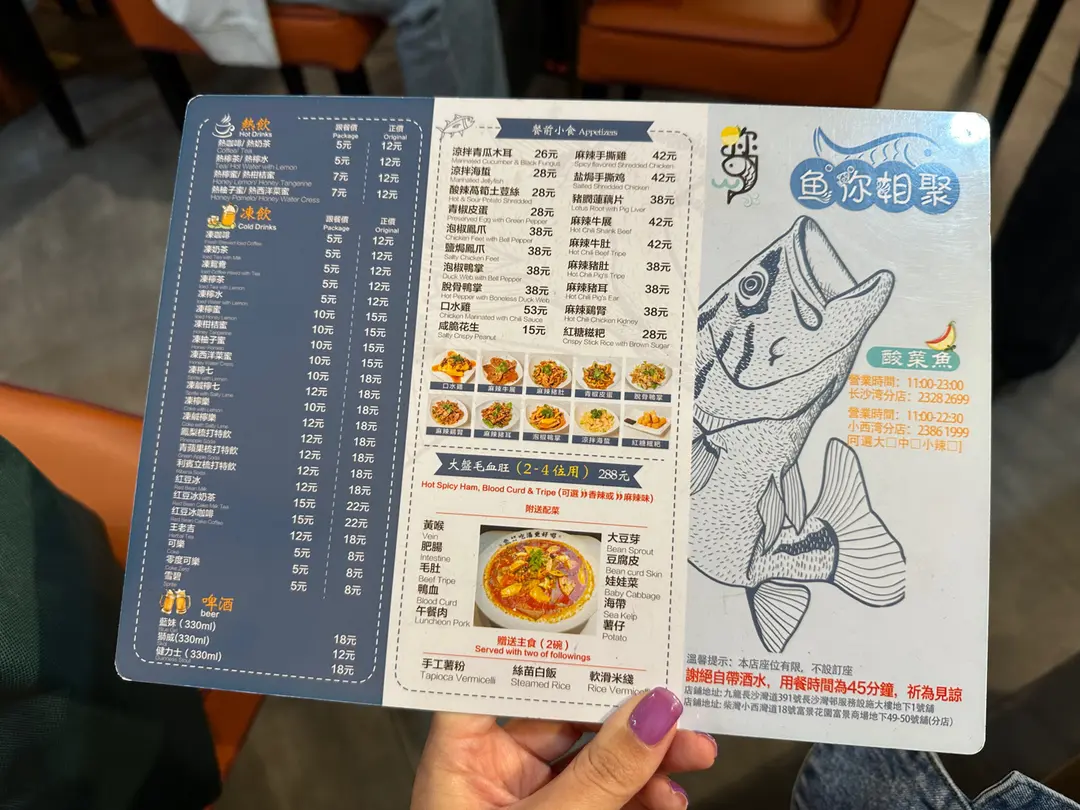 熱飲
Hot Drinks
跟餐價
Package
正價
Original
熱咖啡/ 熱奶茶 5元 12元
Coffee/ Tea
熱檸茶/ 熱檸水 5元 12元
Tea/ Hot Water with Lemon
熱檸蜜/ 熱柑桔蜜 7元 12元
Honey Lemon/ Honey Tangerine
熱柚子蜜/ 熱西洋菜蜜 7元 12元
Honey Pomelo/ Honey Water Cress
凍飲
Cold Drinks
跟餐價
Package
正價
Original
凍咖啡 5元 12元
凍奶茶 5元 12元
Iced Tea with Milk
凍鴛鴦 5元 12元
Iced Coffee mixed with Tea
凍檸茶 5元 12元
Iced Tea with Lemon
凍檸水 5元 12元
Iced Water with Lemon
凍檸蜜 10元 15元
Iced Honey Lemon
凍柑桔蜜 10元 15元
Honey Tangerine
凍柚子蜜 10元 15元
Honey Pomelo
凍西洋菜蜜 10元 15元
Honey Water Cress
凍檸七 10元 18元
Sprite with Lemon
凍鹹檸七 12元 18元
Sprite with Salty Lime
凍檸樂 10元 18元
Coke with Lemon
凍鹹檸樂 12元 18元
Coke with Salty Lime
鳳梨梳打特飲 12元 18元
Pineapple Soda
青蘋果梳打特飲 12元 18元
Green Apple Soda
利賓立梳打特飲 12元 18元
Ribena Soda
紅豆冰 12元 18元
Red Bean Milk
紅豆冰奶茶 15元 22元
Red Bean Cake Milk Tea
紅豆冰咖啡 15元 22元
Red Bean Cake Coffee
王老吉 12元 18元
Herbal Tea
可樂 5元 8元
Coke
零度可樂 5元 8元
Coke Zero
雪碧 5元 8元
Sprite
啤酒
beer
藍妹（330ml） 18元
獅威(330ml) 12元
健力士（330ml） 18元
Guinness Stout
餐前小食 Appetizers
涼拌青瓜木耳 26元
Marinated Cucumber & Black Fungus
涼拌海蜇 28元
Marinated Jellyfish
酸辣萵筍土荳絲 28元
Hot & Sour Potato Shredded
青椒皮蛋 28元
Preserved Egg with Green Pepper
泡椒鳳爪 38元
Chicken Feet with Bell Pepper
鹽焗鳳爪 38元
Salty Chicken Feet
泡椒鴨掌 38元
Duck Web with Bell Pepper
脫骨鴨掌 38元
Hot Pepper with Boneless Duck Web
口水雞 53元
Chicken Marinated with Chili Sauce
咸脆花生 15元
Salty Crispy Peanut
麻辣手撕雞 42元
Spicy flavored Shredded Chicken
盐焗手撕鸡 42元
Salted Shredded Chicken
豬膶蓮藕片 38元
Lotus Root with Pig Liver
麻辣牛展 42元
Hot Chili Shank Beef
麻辣牛肚 42元
Hot Chili Beef Tripe
麻辣豬肚 38元
Hot Chili Pig's Tripe
麻辣豬耳 38元
Hot Chili Pig's Ear
麻辣鷄腎 38元
Hot Chili Chicken Kidney
紅糖糍粑 28元
Crispy Stick Rice with Brown Sugar
口水雞 麻辣牛展 麻辣豬肚 青椒皮蛋 脫骨鴨掌
麻辣鷄腎 麻辣豬耳 泡椒鴨掌 涼拌海蜇 紅糖糍粑
大盤毛血旺（2-4位用）288元
Hot Spicy Ham, Blood Curd & Tripe (可選 香辣或 麻辣味)
附送配菜
黃喉
Vein
肥腸
Intestine
毛肚
Beef Tripe
鴨血
Blood Curd
午餐肉
Luncheon Pork
大豆芽
Bean Sprout
豆腐皮
Bean curd Skin
娃娃菜
Baby Cabbage
海帶
Sea Kelp
薯仔
Potato
贈送主食（2碗）
Served with two of followings
手工薯粉
Tapioca Vermicelli
絲苗白飯
Steamed Rice
軟滑米綫
Rice Vermicelli
鱼你相聚
酸菜魚
營業時間：11:00-23:00
長沙湾分店：2328 2699
營業時間：11:00-22:30
小西湾分店：2386 1999
[可選大□中□小辣□]
溫馨提示：本店座位有限，不設訂座
謝絕自帶酒水，用餐時間為45分鐘，祈為見諒
店鋪地址：九龍長沙灣道391號長沙灣邨服務設施大樓地下1號舖
店鋪地址：柴灣小西灣道18號富景花園富景商場地下49-50號舖(分店)